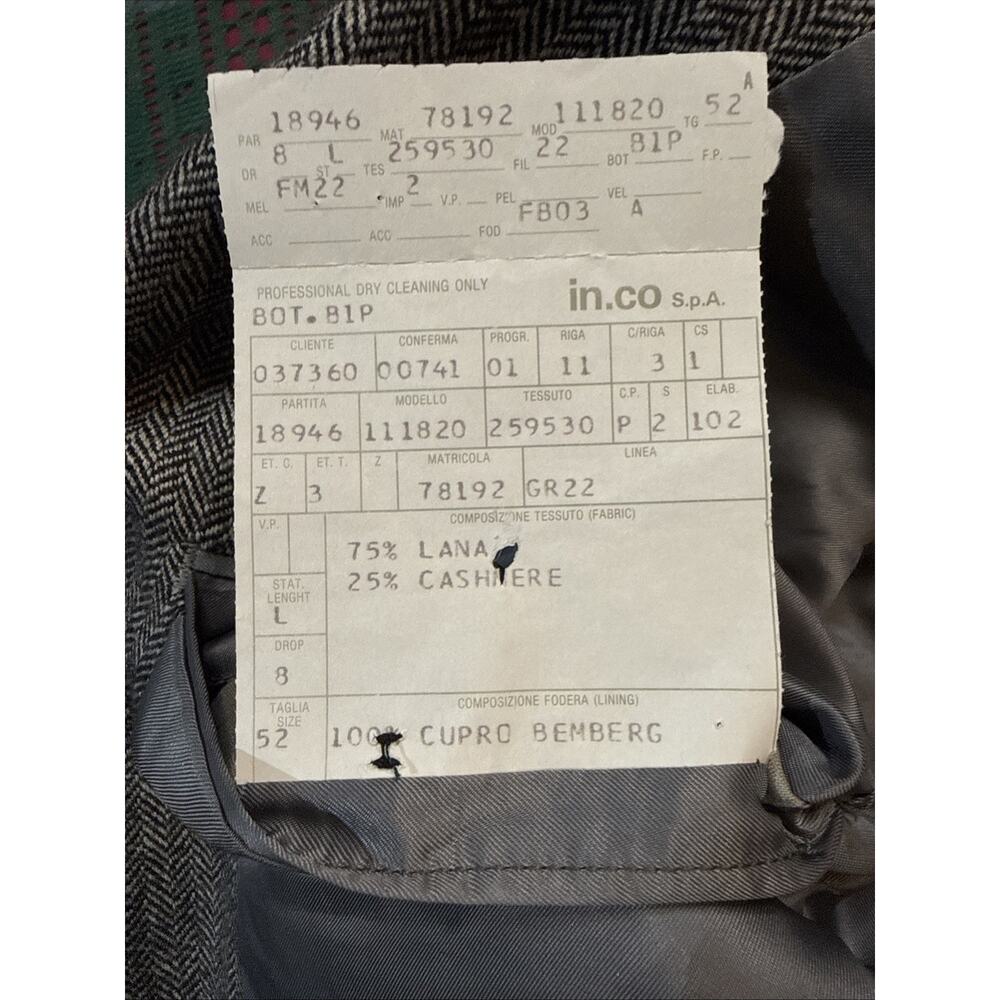 A
PAR 18946 MAT 78192 MOD 111820 TG 52
DR 8 ST L TES 259530 FIL 22 BOT B1P F.P.
MEL FM22 IMP 2 V.P. PEL VEL
ACC ACC FOD FB03 A
PROFESSIONAL DRY CLEANING ONLY
in.co S.p.A.
BOT. B1P
CLIENTE CONFERMA PROGR. RIGA C/RIGA CS
037360 00741 01 11 3 1
PARTITA MODELLO TESSUTO C.P. S ELAB.
18946 111820 259530 P 2 102
ET. C. ET. T. Z MATRICOLA LINEA
Z 3 78192 GR22
V.P. COMPOSIZIONE TESSUTO (FABRIC)
75% LANA
25% CASHMERE
STAT.
LENGHT
L
DROP
8
TAGLIA
SIZE
52
COMPOSIZIONE FODERA (LINING)
100% CUPRO BEMBERG